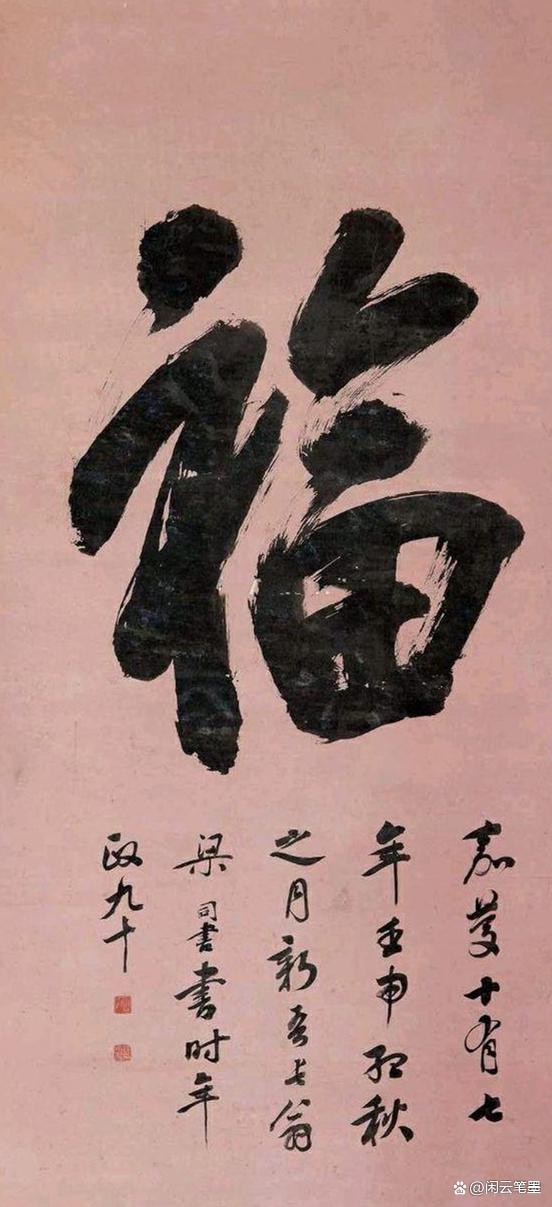 福
嘉慶十有七
年壬申孟秋
之月新吾長翁
梁同書書时年
政九十
@闲云笔墨